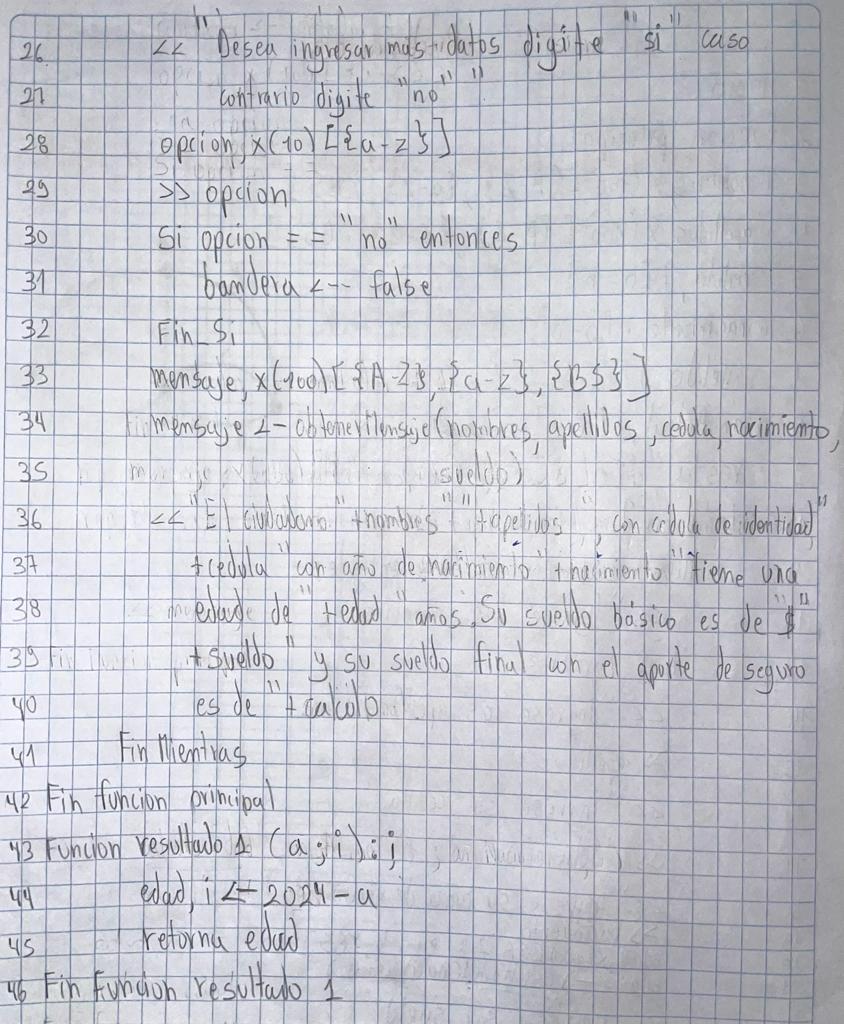 26 << "Desea ingresar mas datos digite "si" caso
27 contrario digite "no" "
28 opcion, x(10) [{a-z}]
29 >> opcion
30 Si opcion == "no" entonces
31 bandera <-- false
32 Fin_Si
33 mensaje, x(100) [{A-Z}, {a-z}, {BS}]
34 mensaje <- obtenerMensaje(nombres, apellidos, cedula, nacimiento,
35 sueldo)
36 << "El ciudadano "+nombres" "+apellidos", con cédula de identidad"
37 +cedula "con año de nacimiento" +nacimiento "tiene una
38 edade de "+edad "años. Su sueldo básico es de "$"
39 +sueldo "y su sueldo final con el aporte de seguro
40 es de "+calculo
41 Fin Mientras
42 Fin funcion principal
43 Funcion resultado 1 (a ; i) : i
44 edad, i <-- 2024 - a
45 retorna edad
46 Fin Funcion resultado 1